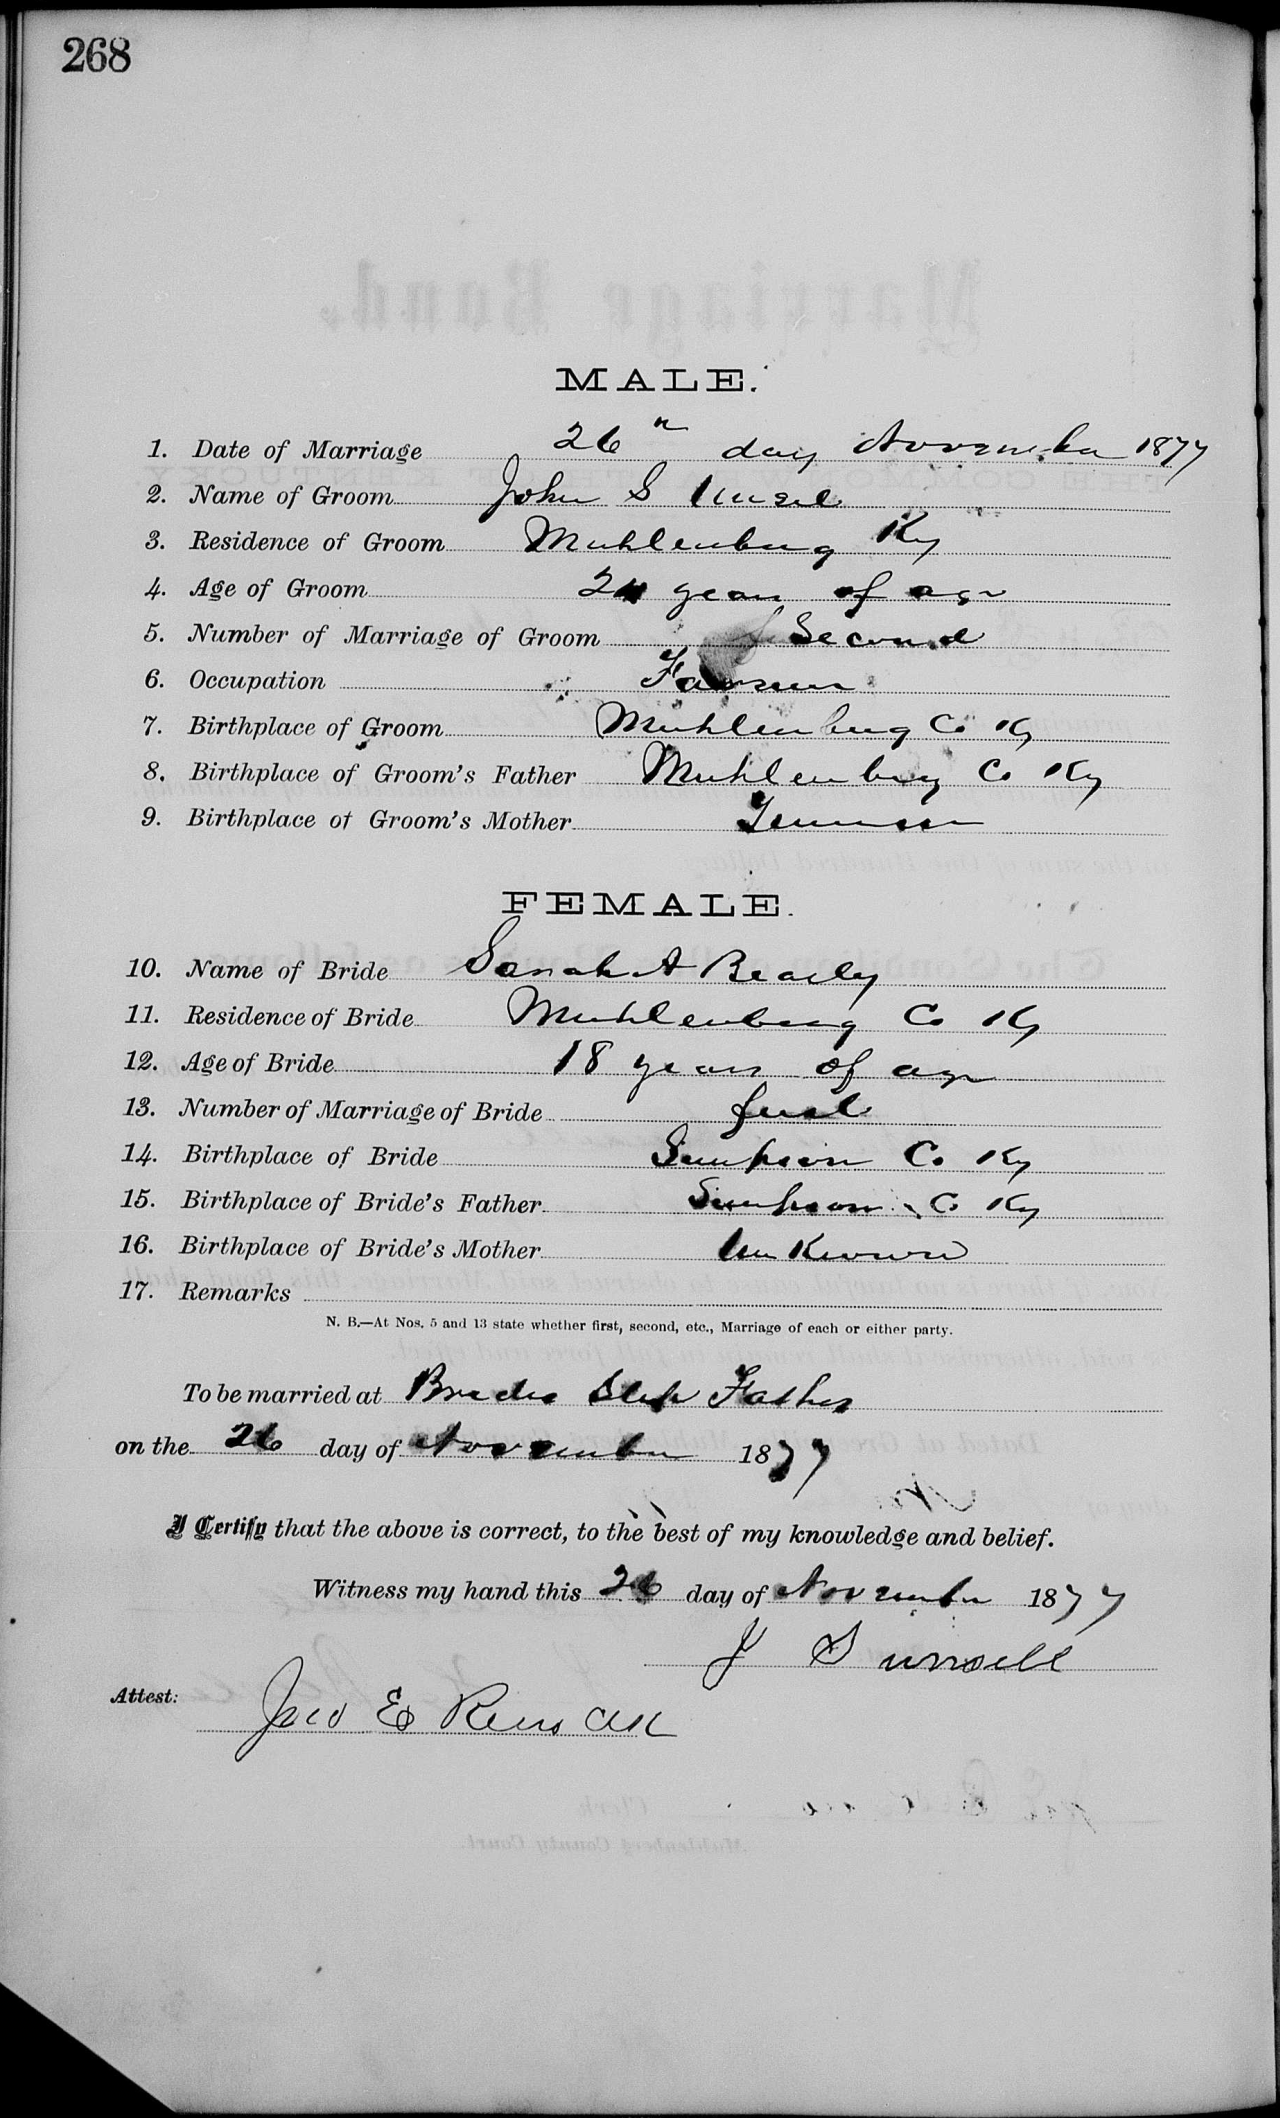 268
MALE.
1. Date of Marriage 26th day November 1877
2. Name of Groom John S Unsel
3. Residence of Groom Muhlenburg Ky
4. Age of Groom 24 years of age
5. Number of Marriage of Groom Second
6. Occupation Farmer
7. Birthplace of Groom Muhlenburg Co Ky
8. Birthplace of Groom's Father Muhlenburg Co Ky
9. Birthplace of Groom's Mother Tennessee
FEMALE.
10. Name of Bride Sarah A Beasly
11. Residence of Bride Muhlenburg Co Ky
12. Age of Bride 18 years of age
13. Number of Marriage of Bride first
14. Birthplace of Bride Simpson Co Ky
15. Birthplace of Bride's Father Simpson Co Ky
16. Birthplace of Bride's Mother Unknown
17. Remarks
N. B.—At Nos. 5 and 13 state whether first, second, etc., Marriage of each or either party.
To be married at Brides Step Father
on the 26 day of November 1877
I Certify that the above is correct, to the best of my knowledge and belief.
Witness my hand this 26 day of November 1877
J S Unsell
Attest:
Jno E Reno